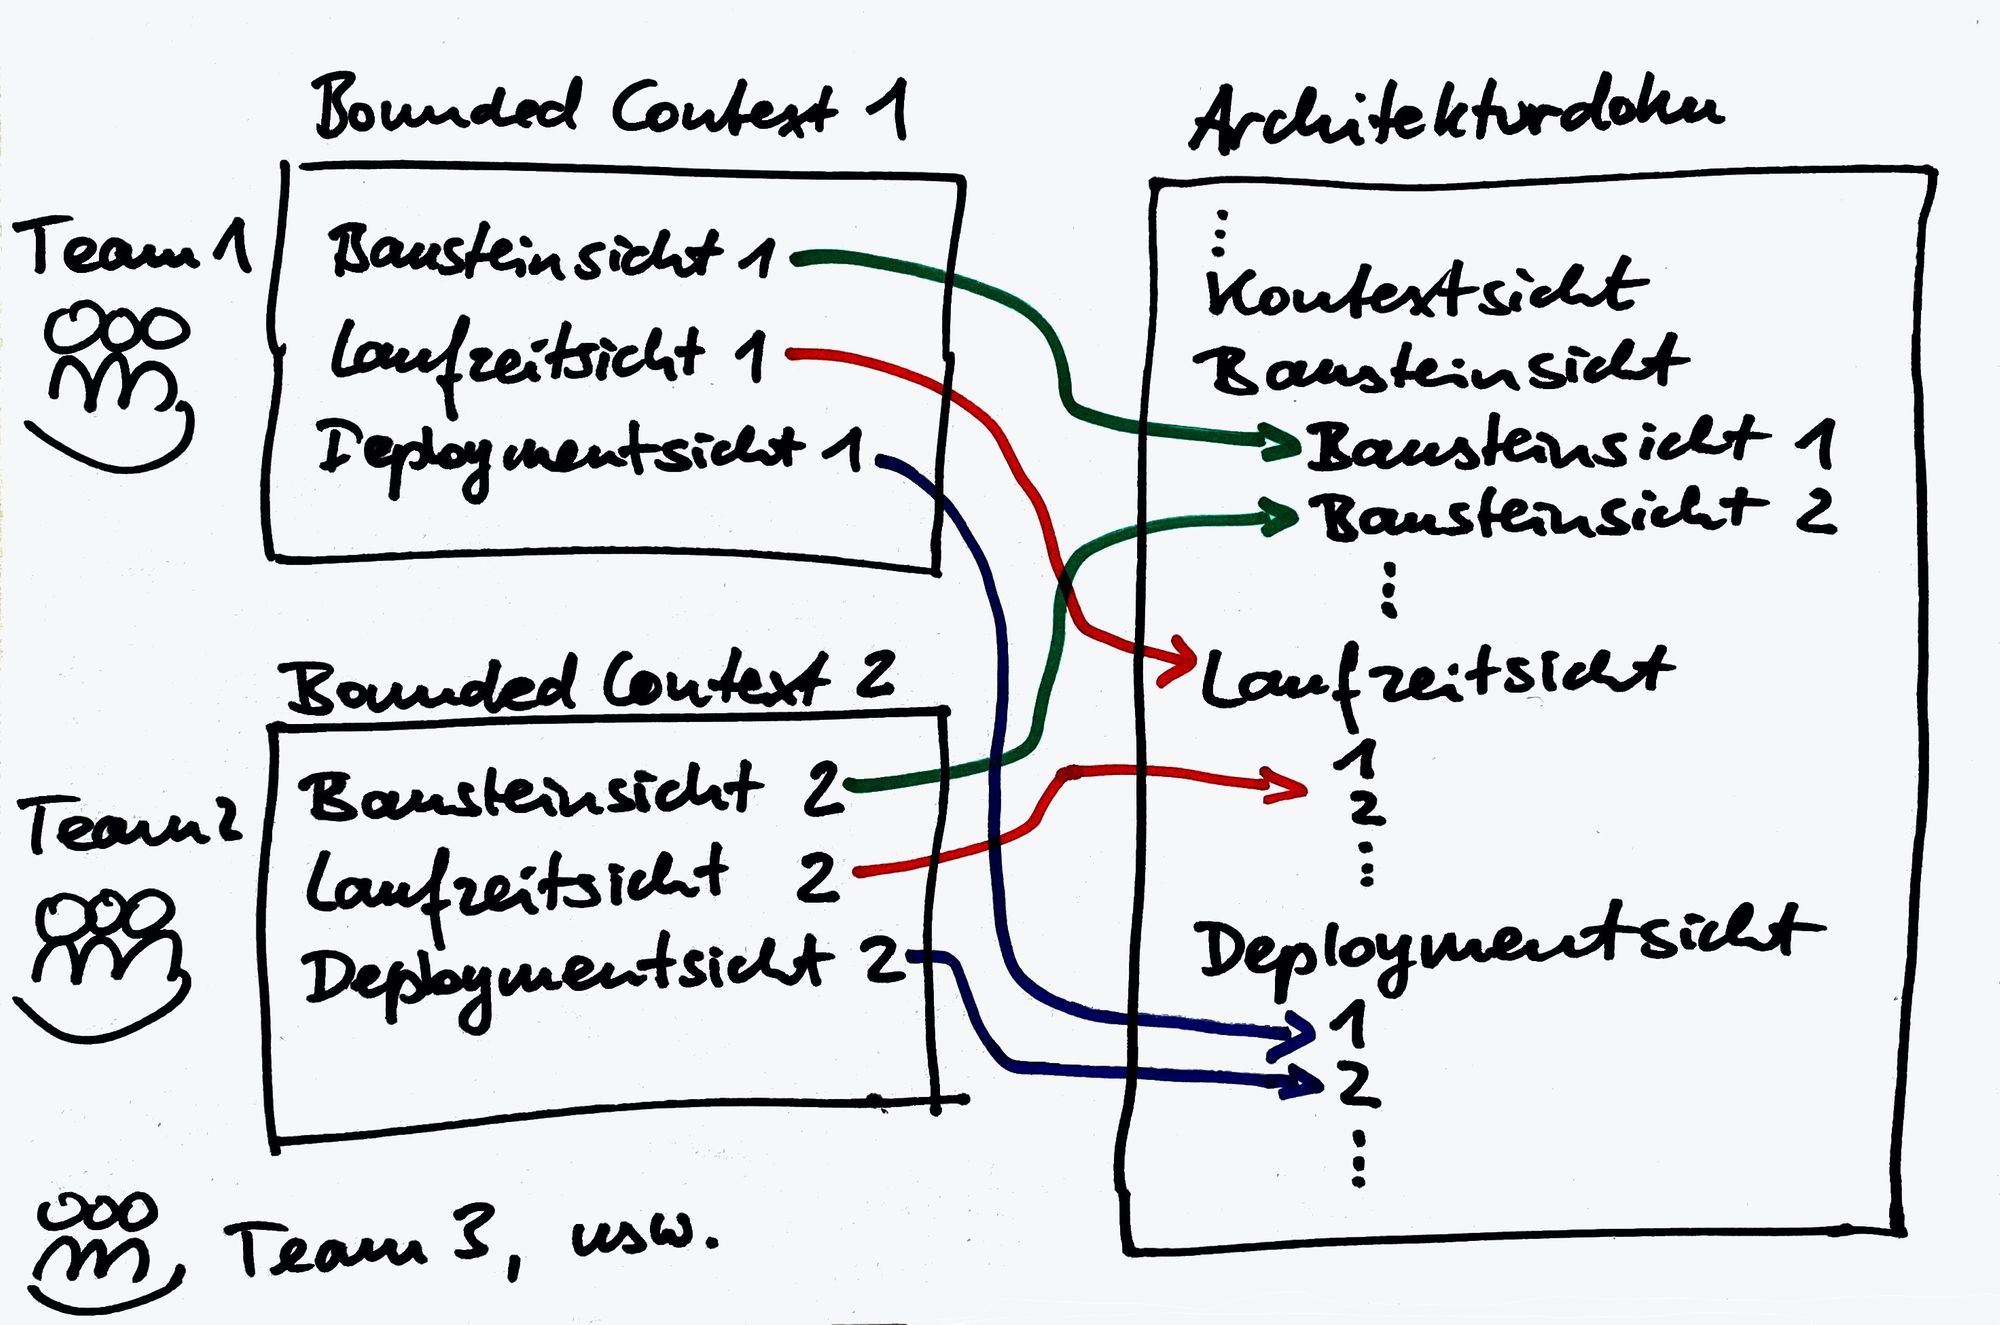 Bounded Context 1
Team 1
Bausteinsicht 1
Laufzeitsicht 1
Deploymentsicht 1
Bounded Context 2
Team 2
Bausteinsicht 2
Laufzeitsicht 2
Deploymentsicht 2
Team 3, usw.
Architekturdoku
⋮
Kontextsicht
Bausteinsicht
Bausteinsicht 1
Bausteinsicht 2
⋮
Laufzeitsicht
1
2
⋮
Deploymentsicht
1
2
⋮